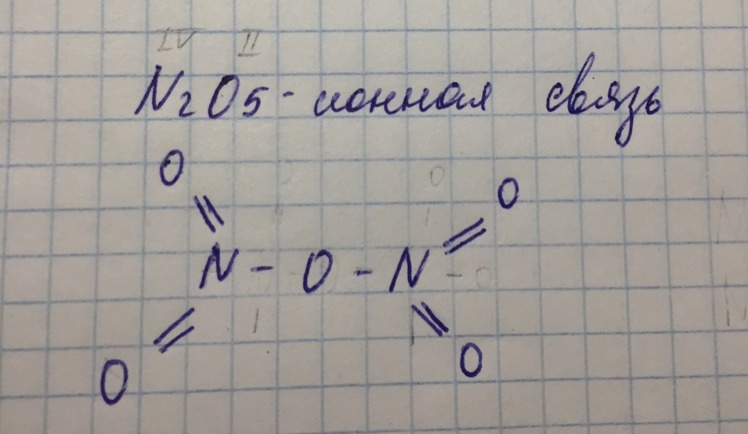 IV II
N2O5 - ионная связь
O O
N - O - N
O O